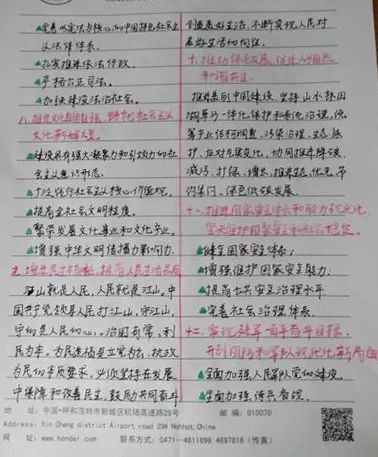 完善以宪法为核心的中国特色社会主
义法律体系。
扎实推进依法行政。
严格公正司法。
加快建设法治社会。
八、推进文化自信自强,铸就社会主义
文化新辉煌。
建设具有强大凝聚力和引领力的社会
主义意识形态。
广泛践行社会主义核心价值观。
提高全社会文明程度。
繁荣发展文化事业和文化产业。
增强中华文明传播力影响力。
九、增进民生福祉,提高人民生活品质
江山就是人民,人民就是江山。中
国共产党领导人民打江山,守江山,
守的是人民的心。治国有常,利
民为本。为民造福是立党为公、执政
为民的本质要求。必须坚持在发展
中保障和改善民生,鼓励共同奋斗
创造美好生活,不断实现人民对
美好生活的向往。
十、推动绿色发展,促进人与自然
和谐共生。
推进美丽中国建设,坚持山水林田
湖草沙一体化保护和系统治理,统
筹产业结构调整、污染治理、生态保
护、应对气候变化,协同推进降碳、
减污、扩绿、增长,推进生态优先、节
约集约、绿色低碳发展。
十一、推进国家安全体系和能力现代化,
坚决维护国家安全和社会稳定。
健全国家安全体系;
增强维护国家安全能力;
提高公共安全治理水平
完善社会治理体系。
十二、实现建军一百年奋斗目标,
开创国防和军队现代化新局面
全面加强人民军队党的建设。
全面加强练兵备战。
地 址:中国·呼和浩特市新城区机场高速路29号 邮编:010070
Address: Xin Cheng district Airport road 29# Hohhot.China
网 址:www.honder.com 联系方式:0471-4611698 4697816(传真)